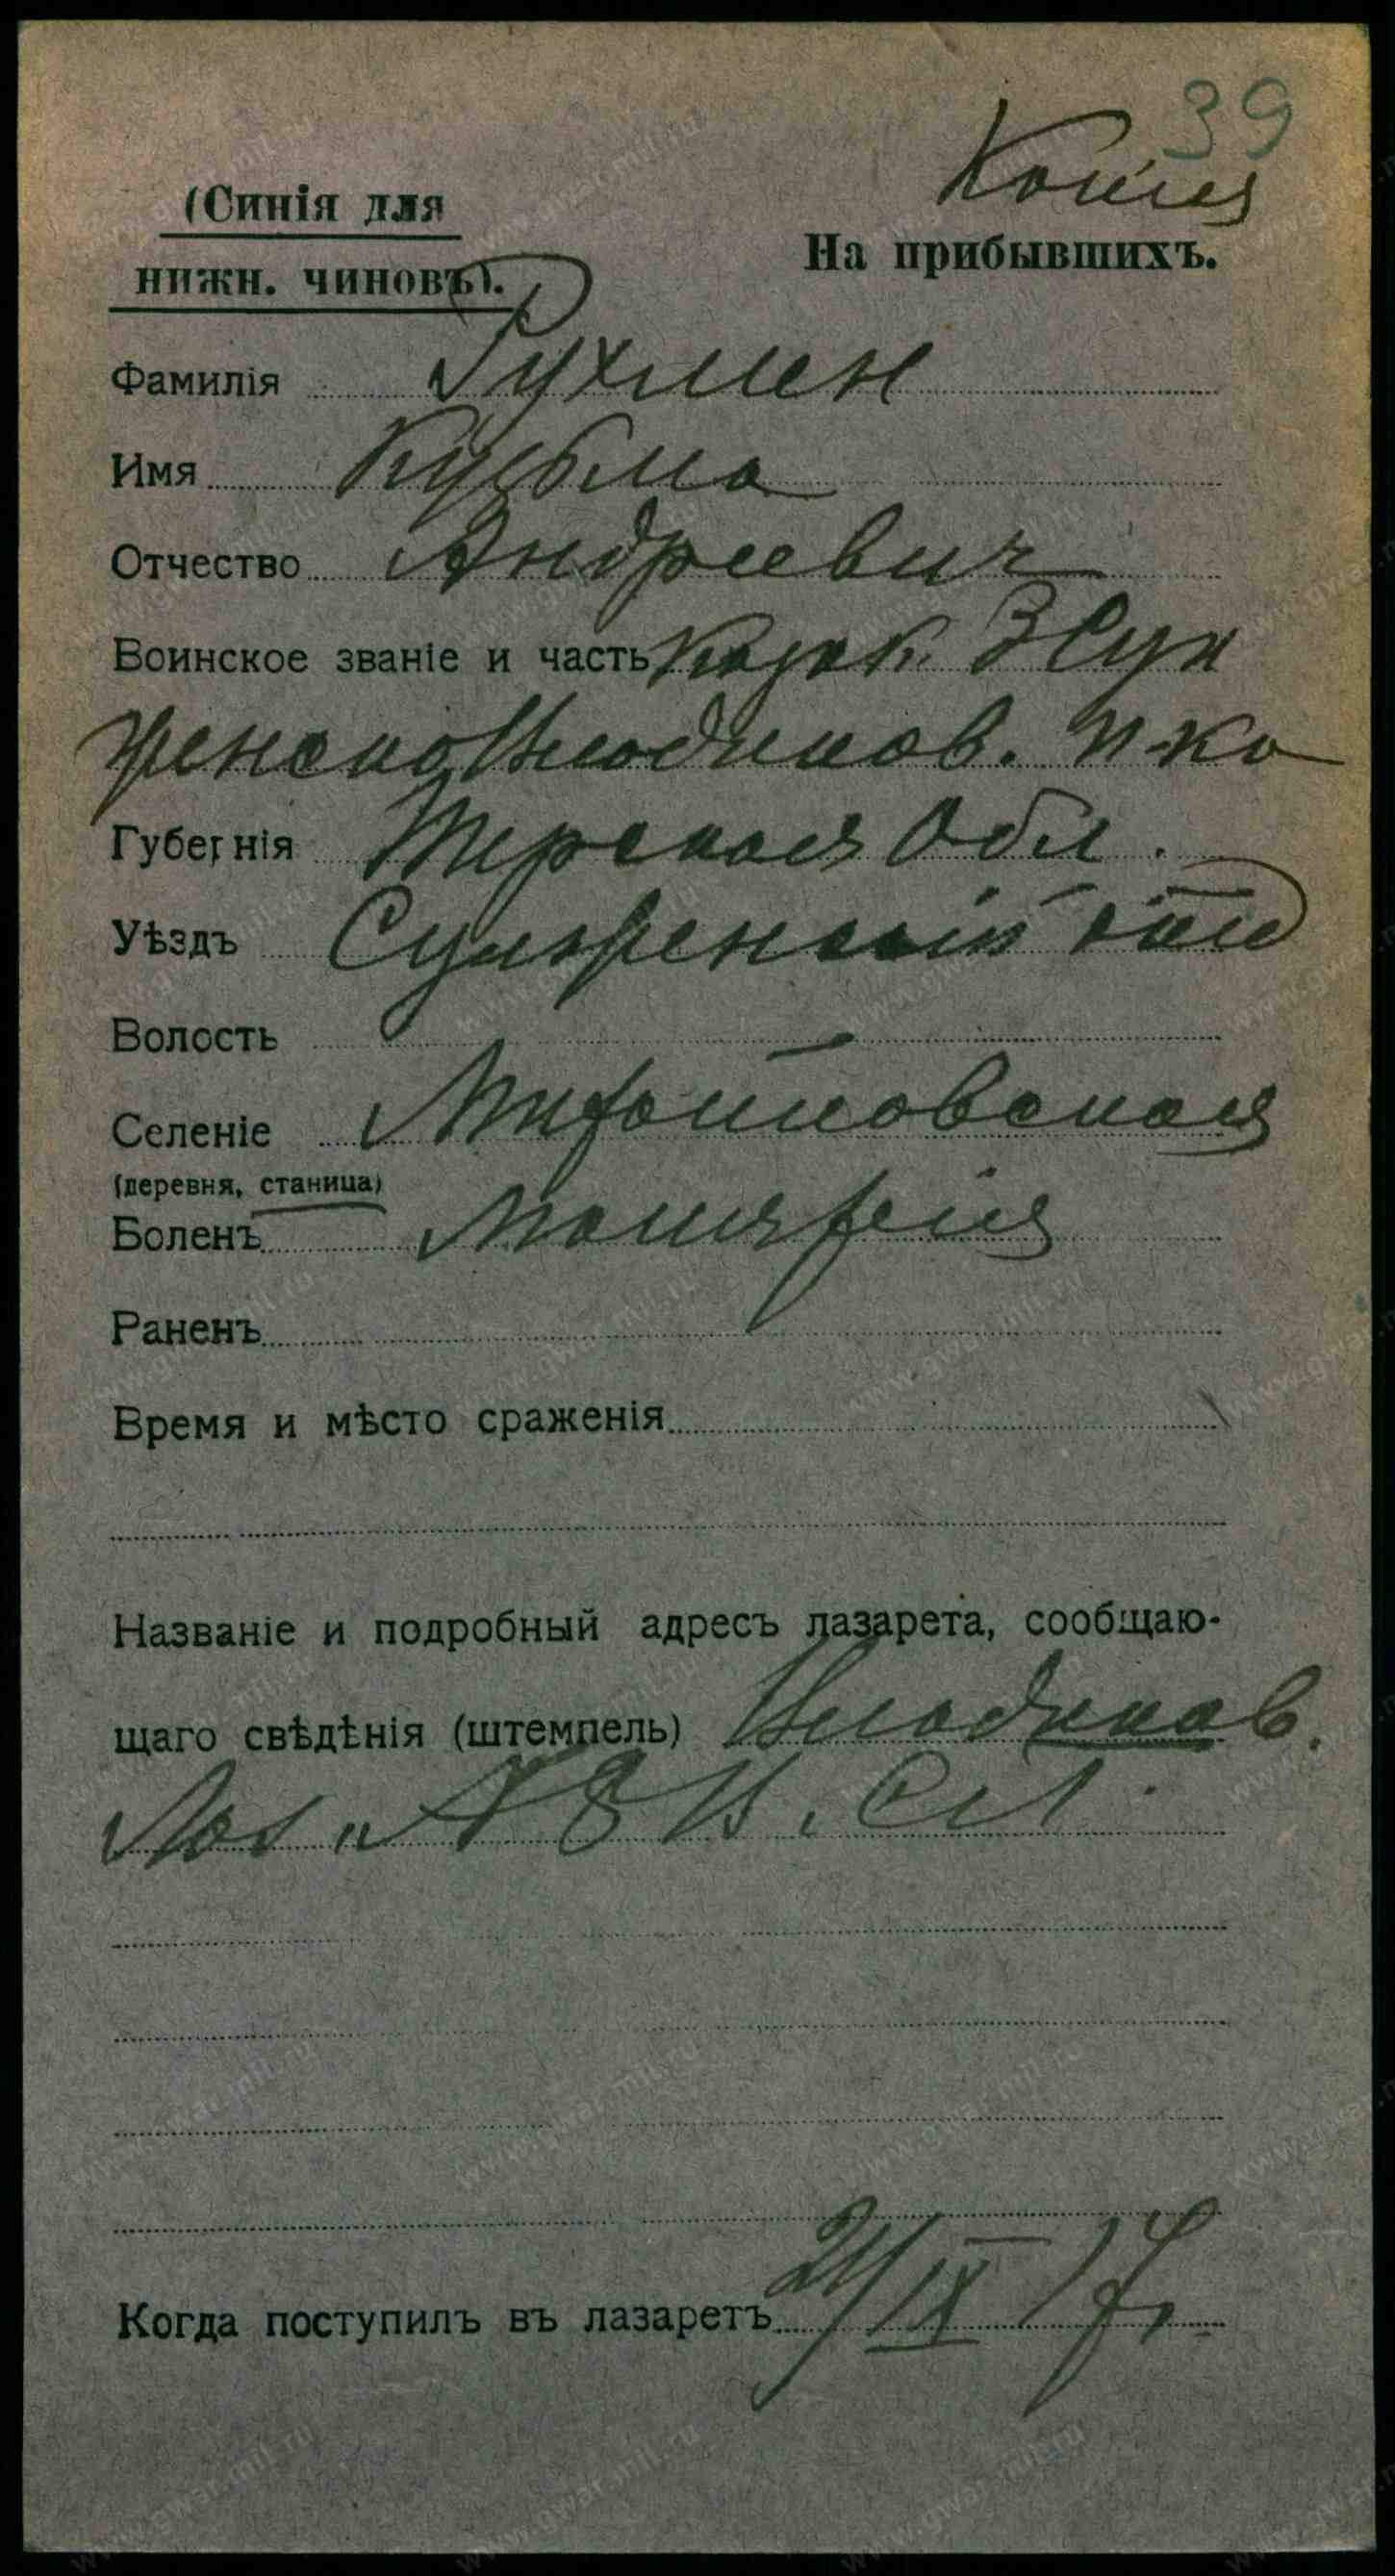 39
Копия
(Синія для
нижн. чиновъ).
На прибывшихъ.
Фамилія Рухмен
Имя Кузьма
Отчество Андреевич
Воинское званіе и часть Казак 3 Сун
женско Владиков. п-ка
Губернія Терская Обл.
Уѣздъ Сунженскій отд
Волость
Селеніе
(деревня, станица)
Боленъ Малярия
Раненъ
Время и мѣсто сраженія
Названіе и подробный адресъ лазарета, сообщаю-
щаго свѣдѣнія (штемпель) Владиков.
Лаз. № 8
Когда поступилъ въ лазаретъ 21/IX 17